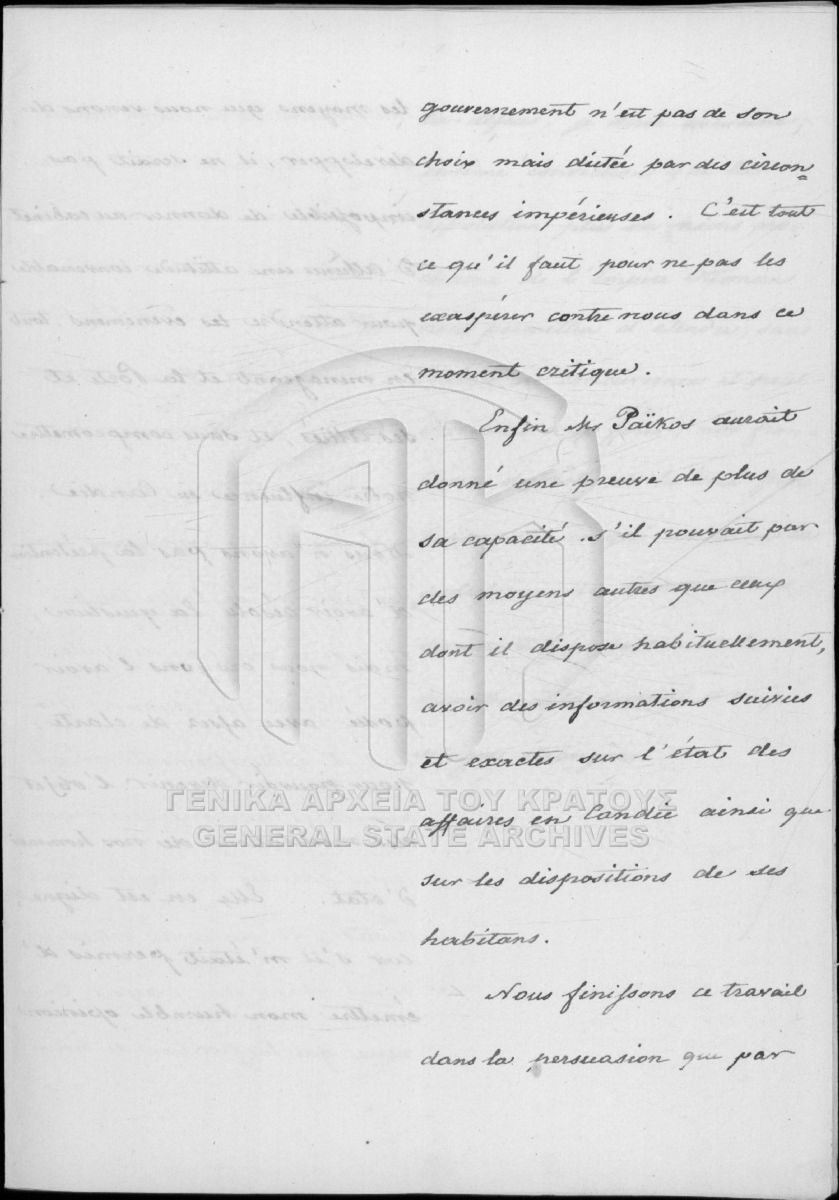 gouvernement n'est pas de son
choix mais dictée par des circon=
stances impérieuses. C'est tout
ce qu'il faut pour ne pas les
exaspérer contre nous dans ce
moment critique.
Enfin Mr Païkos aurait
donné une preuve de plus de
sa capacité s'il pouvait par
des moyens autres que ceux
dont il dispose habituellement,
avoir des informations suivies
et exactes sur l'état des
affaires en Candie ainsi que
sur les dispositions de ses
habitans.
Nous finissons ce travail
dans la persuasion que par
ΓΕΝΙΚΑ ΑΡΧΕΙΑ ΤΟΥ ΚΡΑΤΟΥΣ
GENERAL STATE ARCHIVES